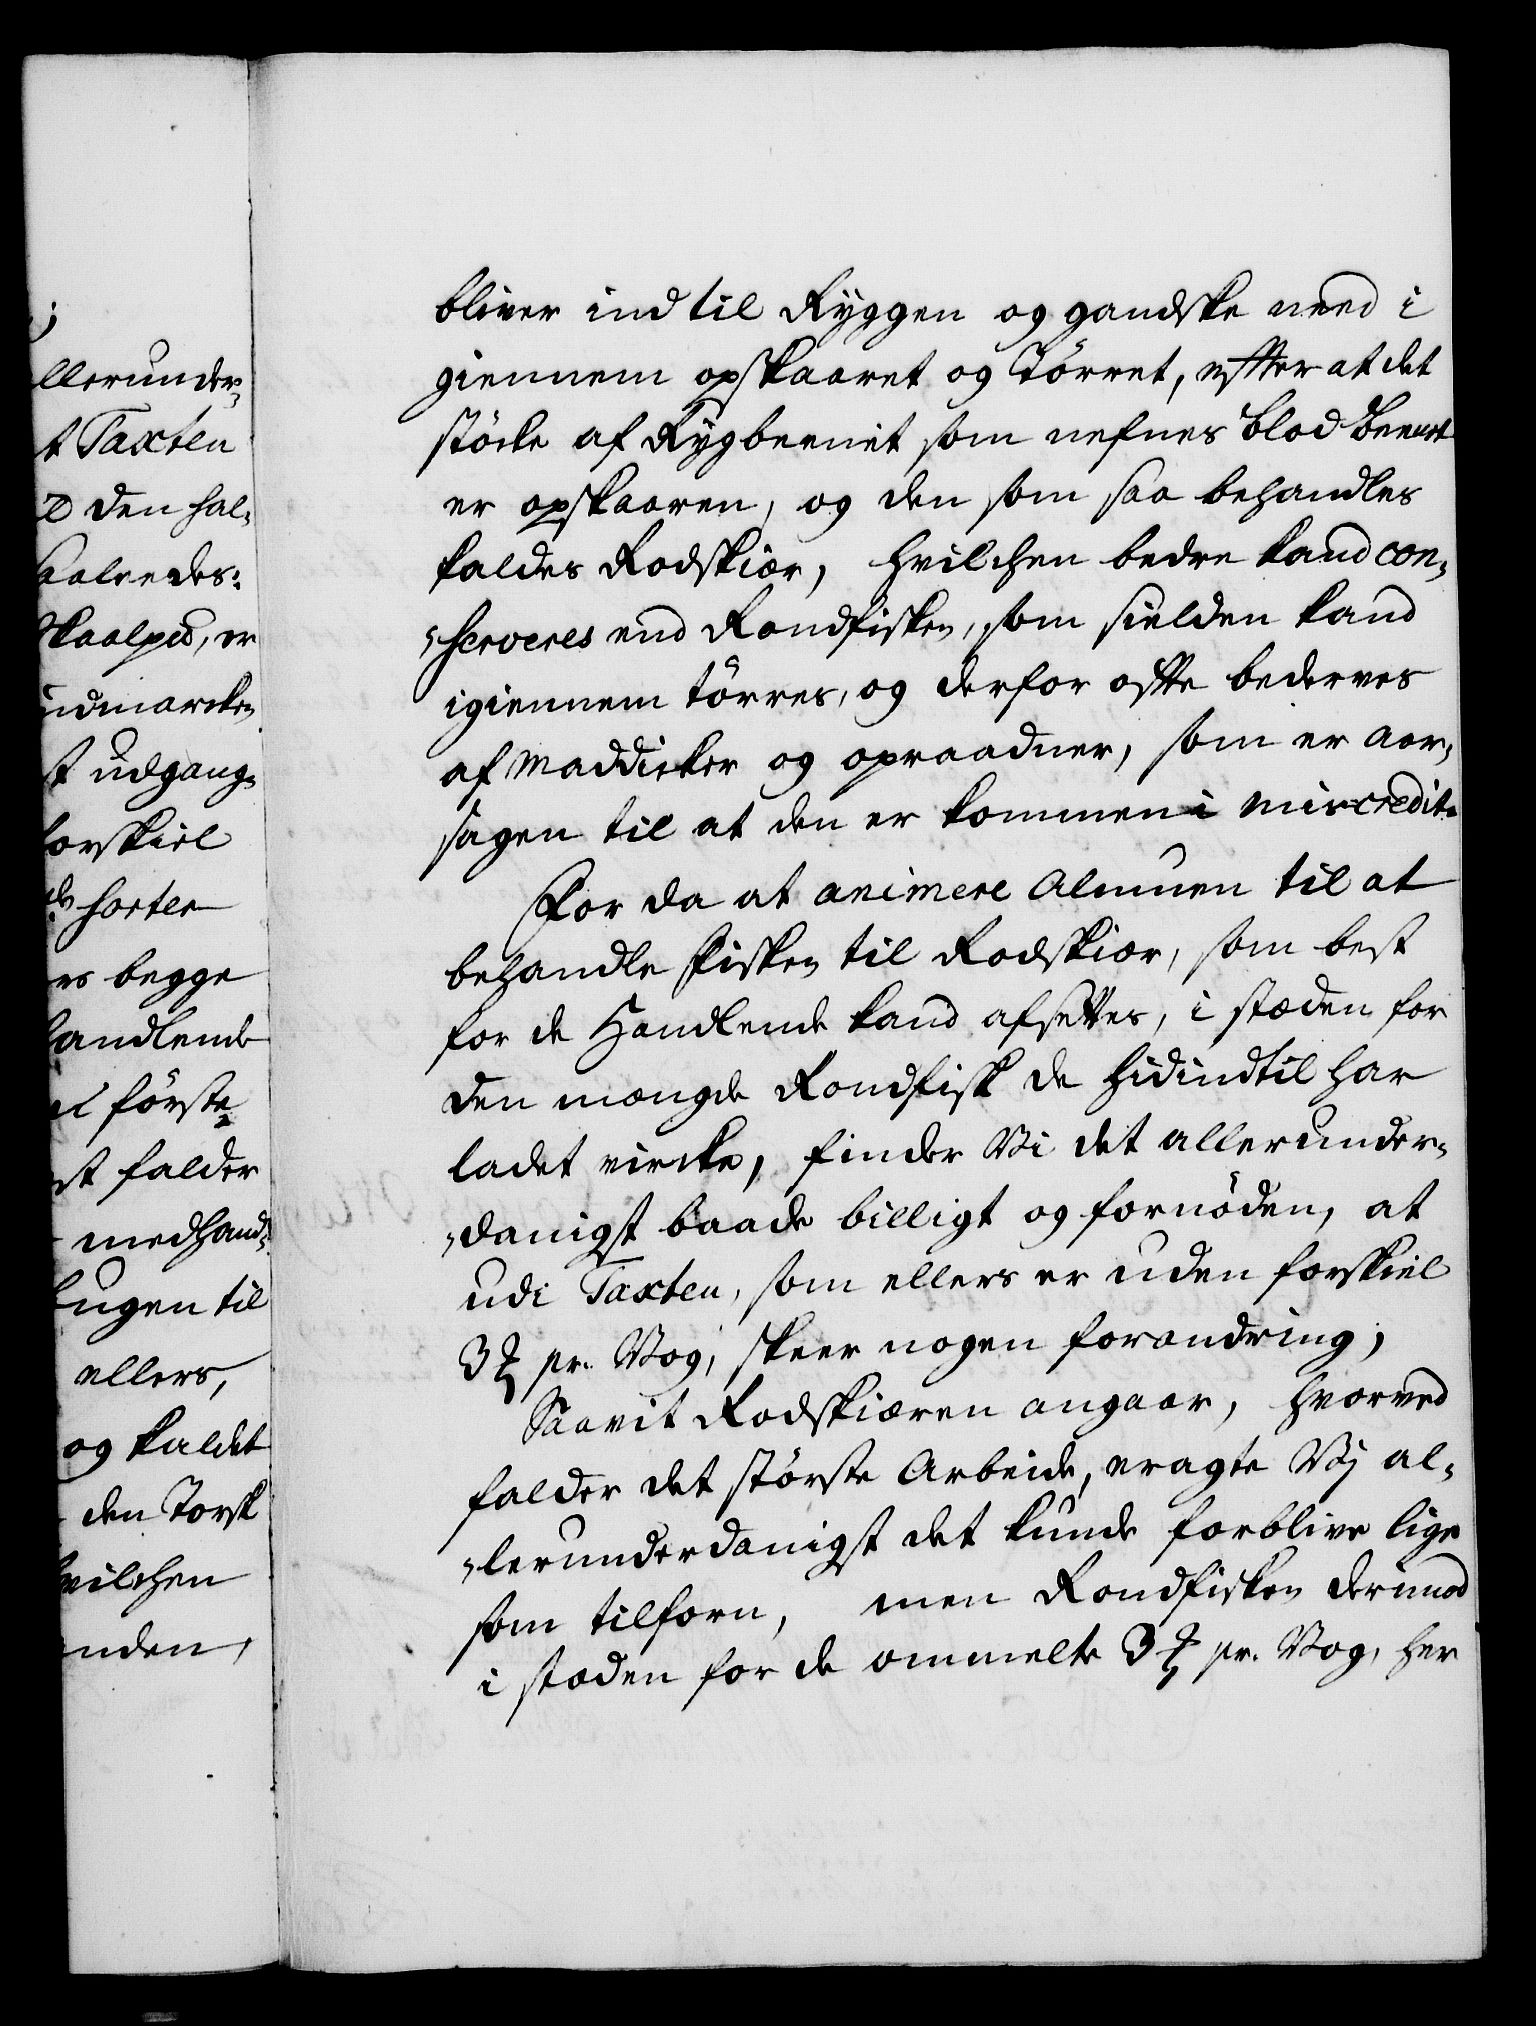 llerunder¬
t Taxten
den hal¬
aaleedes:
Skaalped, er
indmarcken
st udgang¬
forskiel
sorter
rs begge
handlende
første
st falder
medhand¬
bugen til
ellers,
og kaldet
den Torsk
hvilchen
nden,
bliver ind til Ryggen og gandske need i
giennem opskaaret og Tørret, effter at det
støcke af Rygbeenet som nefnes blod beenet
er opskaaren, og den som saa behandles
kaldes Rodskiær, hvilchen bedre kand con¬
serveres end Rondfisken, som sielden kand
igiennem tørres, og derfor offte bederves
af Maddicker og opraadner, som er aar¬
sagen til at den er kommen i miscredit.
For da at animere Almuen til at
behandle Fisken til Rodskiær, som best
for de Handlende kand afsettes, i stæden for
den mængde Rondfisk de hidindtil har
ladet vircke, finder Vi det allerunder¬
danigst baade billigt og fornøden, at
udi Taxten, som ellers er uden forskiel
3 ꝑ pr. Vog, skeer nogen forandring;
Saavit Rodskiæren angaar, hvorved
falder det største Arbeide, eragte Vj al¬
lerunderdanigst det kunde forblive lige
som tilforn, men Rondfisken derimod
i stæden for de ommelte 3 ꝑ pr. Vog, her